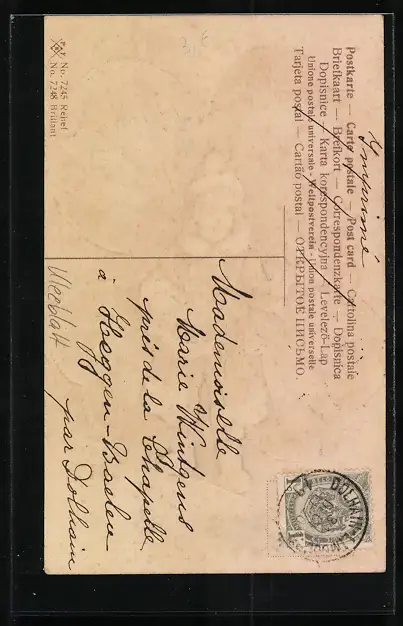 Postkarte — Carte postale — Post card — Cartolina postale
Briefkaart — Brefkort — Correspondenzkarte — Dopisnica
Dopisnice — Karta korespondencyjna — Levelező-Lap
Unione postale universale - Weltpostverein - Union postale universelle
Tarjeta postal — Cartão postal — ОТКРЫТОЕ ПИСЬМО.
Imprimé
1
DOLHAIN-LIMBOURG
Mademoiselle
Marie Wintgens
près de la Chapelle
à
par Dolhain
No. 7245 Relief
No. 7248 Brillant